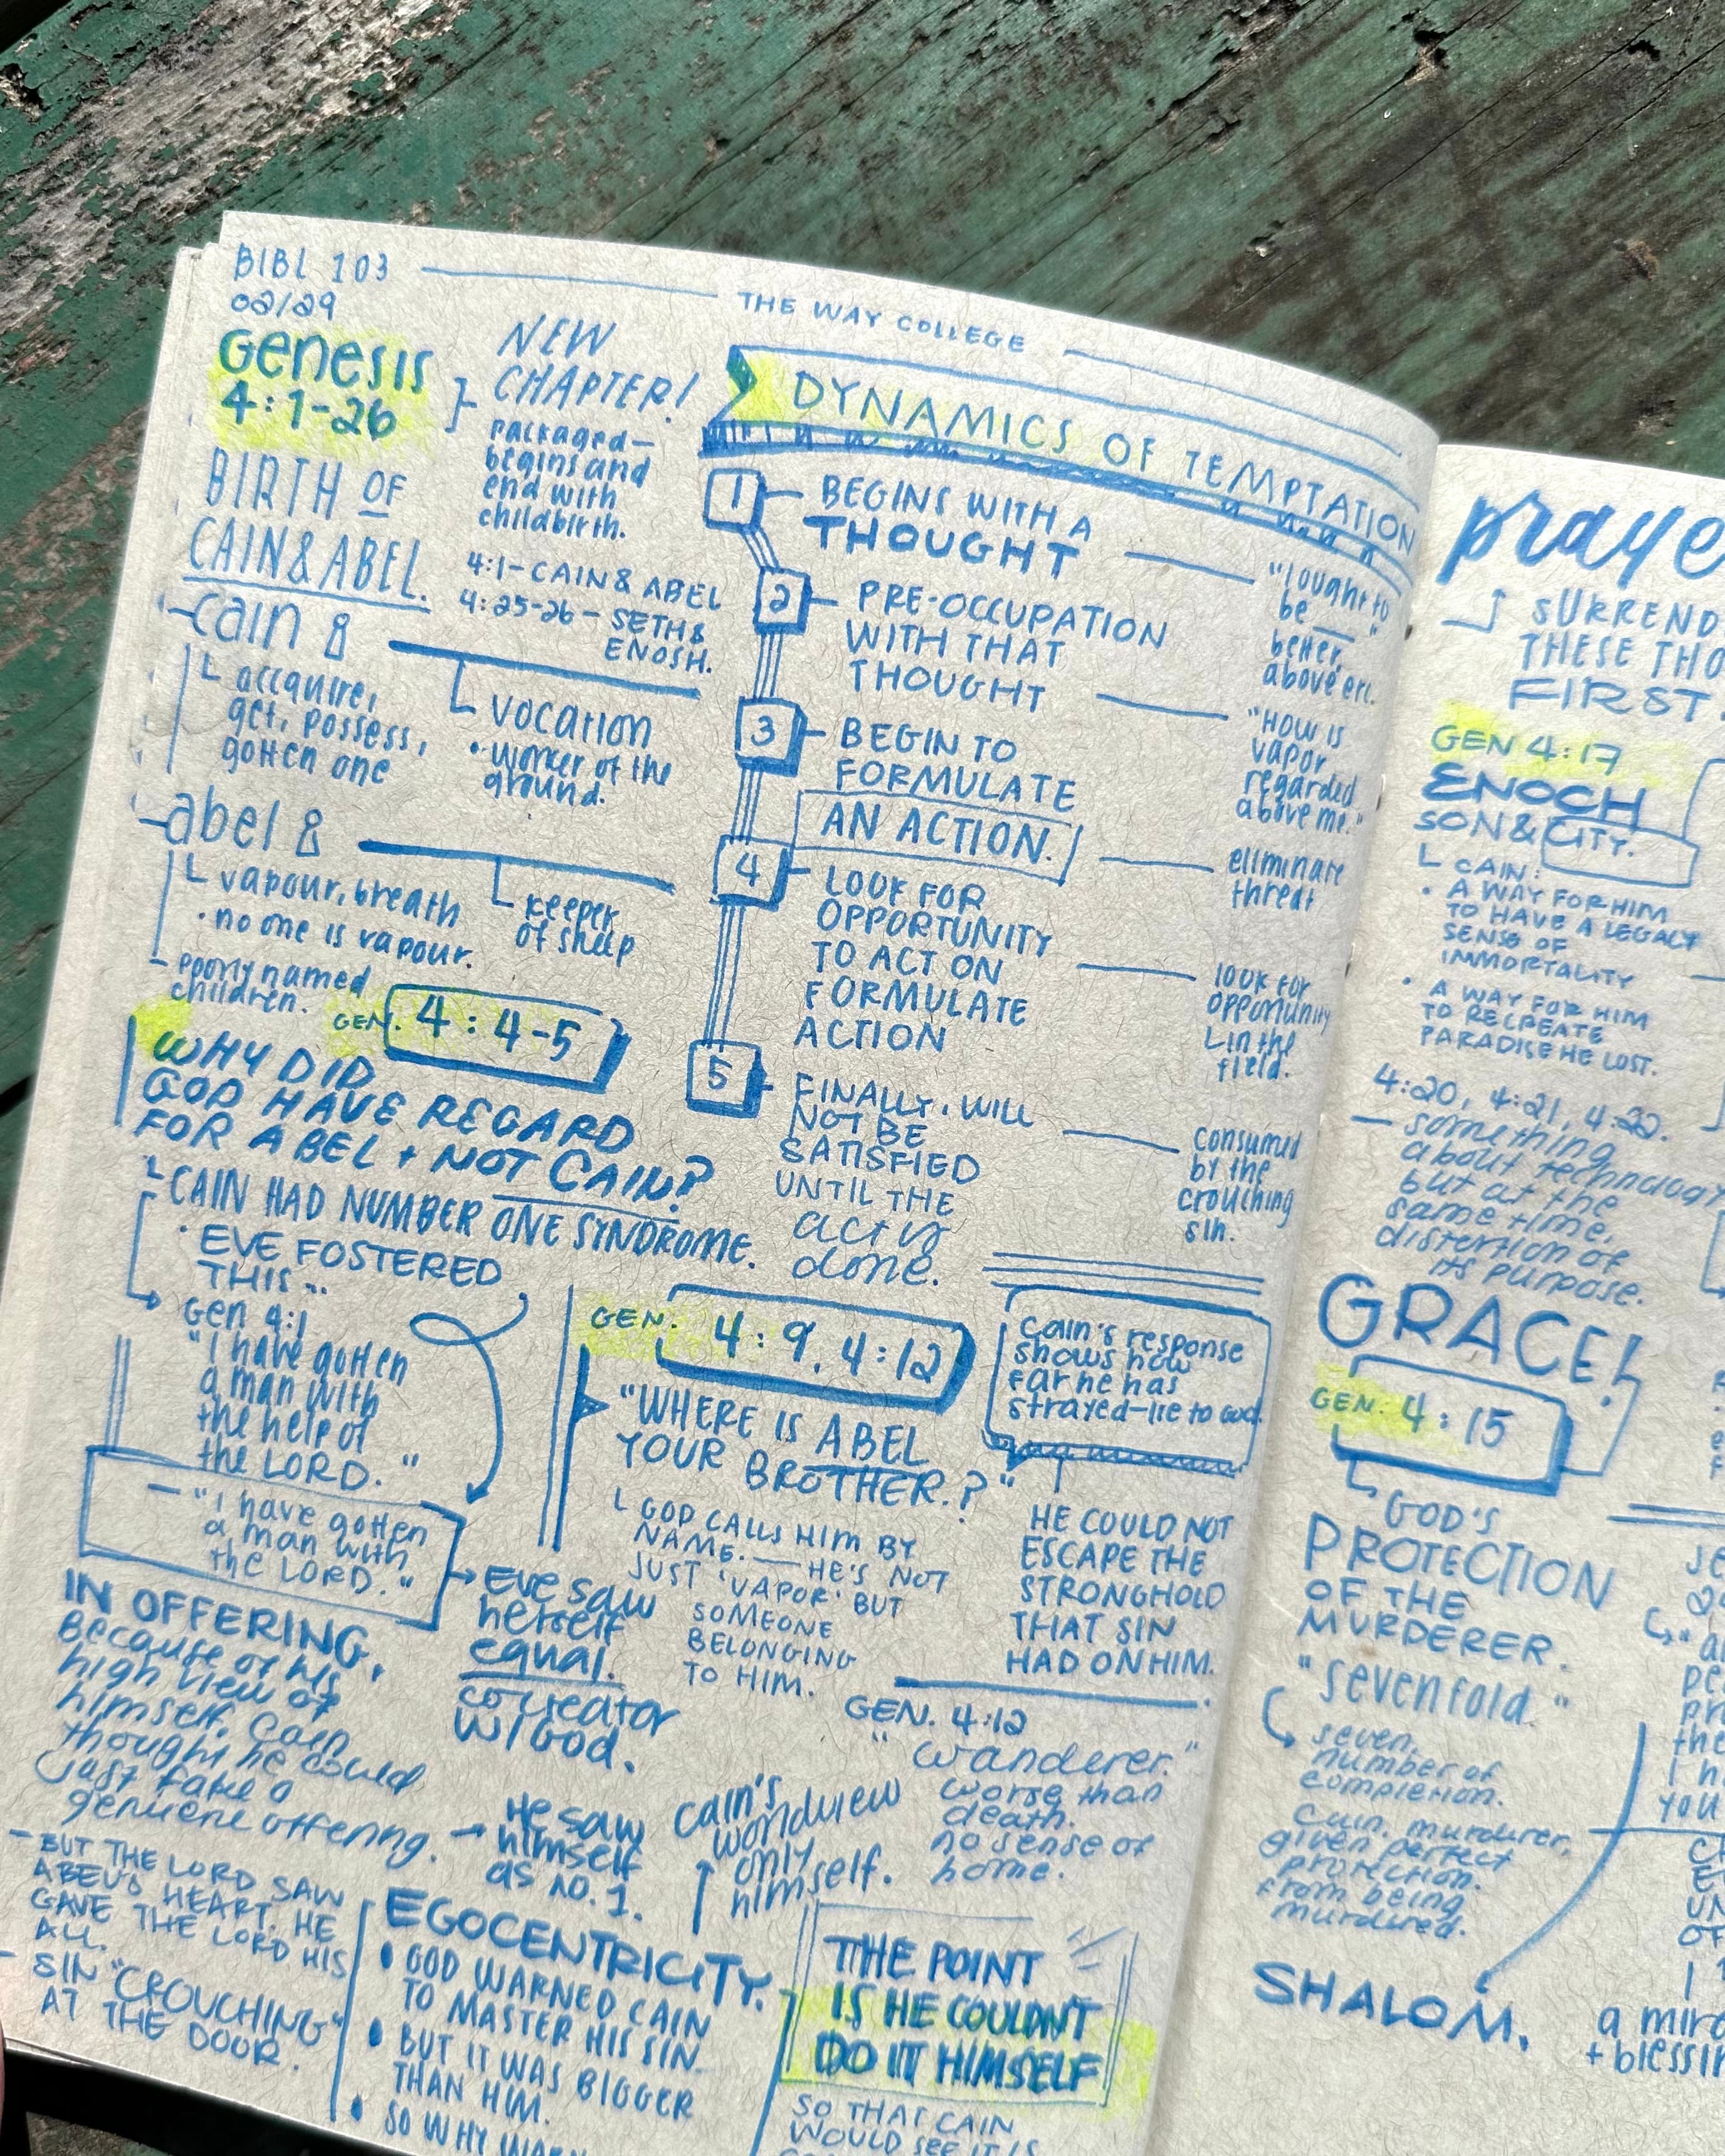 BIBL 103
02/29
THE WAY COLLEGE
Genesis
4:1-26
NEW
CHAPTER!
packaged—
begins and
end with
childbirth.
4:1-CAIN & ABEL
4:25-26 - SETH &
ENOSH.
BIRTH OF
CAIN & ABEL.
cain
accquire,
get, possess,
gotten one
vocation
• worker of the
ground.
abel
vapour, breath
• no one is vapour.
keeper
of sheep
poorly named
children.
GEN. 4:4-5
WHY DID
GOD HAVE REGARD
FOR ABEL + NOT CAIN?
CAIN HAD NUMBER ONE SYNDROME.
• EVE FOSTERED
THIS...
Gen 4:1
"I have gotten
a man with
the help of
the LORD."
— "I have gotten
a man with
the LORD."
Eve saw
herself
equal.
cocreator
w/God.
IN OFFERING,
Because of his
high view of
himself, Cain
thought he could
just fake a
genuine offering.
→ He saw
himself
as no. 1.
- BUT THE LORD SAW
ABEL'S HEART. HE
GAVE THE LORD HIS
ALL.
- SIN "CROUCHING"
AT THE DOOR.
DYNAMICS OF TEMPTATION
1 BEGINS WITH A
THOUGHT
"I ought to
be __"
better,
above etc.
2 PRE-OCCUPATION
WITH THAT
THOUGHT
"HOW IS
vapor
regarded
above me."
3 BEGIN TO
FORMULATE
AN ACTION.
eliminate
threat
4 LOOK FOR
OPPORTUNITY
TO ACT ON
FORMULATE
ACTION
look for
opportunity
in the
field.
5 FINALLY, WILL
NOT BE
SATISFIED
UNTIL THE
act is
done.
consumed
by the
crouching
sin.
GEN. 4:9, 4:12
"WHERE IS ABEL
YOUR BROTHER.?"
GOD CALLS HIM BY
NAME. — HE'S NOT
JUST 'VAPOR' BUT
SOMEONE
BELONGING
TO HIM.
Cain's response
shows how
far he has
strayed-lie to God.
HE COULD NOT
ESCAPE THE
STRONGHOLD
THAT SIN
HAD ON HIM.
GEN. 4:12
"wanderer."
worse than
death.
no sense of
home.
Cain's
worldview
only
himself.
EGOCENTRICITY.
• GOD WARNED CAIN
TO MASTER HIS SIN.
• BUT IT WAS BIGGER
THAN HIM.
• SO WHY WARN
THE POINT
IS HE COULDN'T
DO IT HIMSELF
SO THAT CAIN
WOULD SEE IT IS
praye
SURREND
THESE THO
FIRST.
GEN 4:17
ENOCH
SON & CITY.
CAIN:
• A WAY FOR HIM
TO HAVE A LEGACY
SENSE OF
IMMORTALITY
• A WAY FOR HIM
TO RECREATE
PARADISE HE LOST.
4:20, 4:21, 4:22.
— something
about technology
but at the
same time,
distertion of
its purpose.
GRACE!
GEN. 4:15
GOD'S
PROTECTION
OF THE
MURDERER.
"sevenfold."
seven,
number of
completion.
Cain, murderer,
given perfect
protection.
from being
murdured.
SHALOM.
a mira
+ blessin